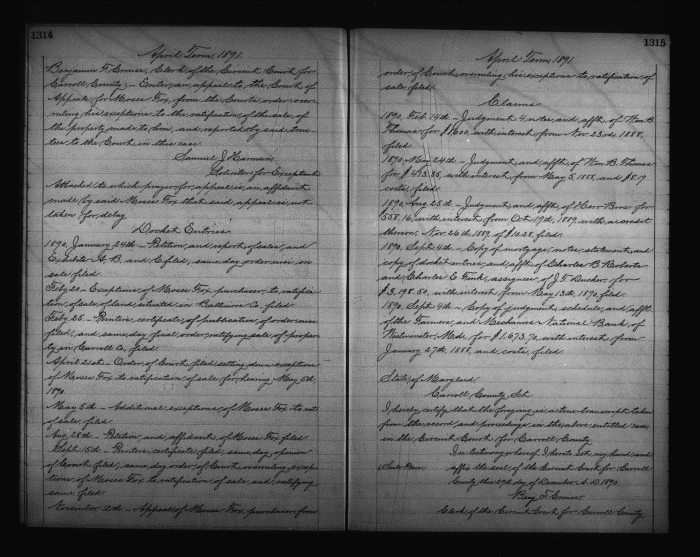 1314
April Term 1891.
Benjamin F. Crouse, Clerk of the Circuit Court for
Carroll County;- Enter an appeal to the Court of
Appeals for Moses Fox, from the Courts order over-
ruling his exceptions to the ratification of the sale of
the property made to him, and reported by said trus-
tee to the Court in this case.
Samuel J. Harman
Solicitor for Exceptant
Attached to which prayer for appeal is an affidavit
made by said Moses Fox that said appeal is not
taken for delay.
Docket Entries
1890, January 24th - Petition and report of sales, and
Exhibits A, B, and C filed, same day order nisi on
sale filed.
Feby 20 - Exceptions of Moses Fox, purchaser, to ratifica-
tion of sale of land, situated in Baltimore Co, filed.
Feby 25 - Printers certificate of publication of order nisi
filed, and same day final order ratifying sale of proper-
ty in Carroll Co, filed.
April 21st - Order of Court filed setting down exceptions
of Moses Fox to ratification of sale for hearing May 5th
1890.
May 5th - Additional exceptions of Moses Fox to rat
of sale, filed.
Aug 28th - Petition, and affidavit of Moses Fox filed
Sept. 15th - Printers certificate filed, same day opinion
of Court filed, same day order of Court overruling excep-
tions of Moses Fox to ratification of sale and ratifying
same, filed.
November 12th - Appeal of Moses Fox, purchaser from
1315
April Term 1891.
order of Court overruling his exceptions to ratification of
sale, filed.
Claims
1890, Feb. 14th - Judgment, 4 notes, and affts. of Wm B.
Thomas for $1600. with interest from Nov 23rd 1888,
filed
1890, May 24th - Judgment, and affts. of Wm B. Thomas
for $493.35, with interest from May 5, 1888, and $8.19
costs, filed.
1890, Aug 25th - Judgment, and affts. of Kerr Bros for
558.16, with interest from Oct 19th, 1889, with a credit
thereon, Nov. 26th 1889, of $10.28 filed.
1890. Sept. 4th - Copy of mortgage, notes, statement, and
copy of docket entries, and affts. of Charles B. Roberts
and Charles E. Fink, assignees of J. T. Ducker for
$3,198.50, with interest from May 13th, 1890, filed.
1890, Sept. 4th - Copy of judgment, schedule, and affts
of the Farmers and Mechanics National Bank of
Westminster, Md., for $1,673.70, with interest from
January 27th 1888, and costs, filed.
State of Maryland
Carroll County Sct.
I hereby certify that the forgoing is a true transcript taken
from the record, and proceedings in the above entitled case,
in the Circuit Court for Carroll County.
In testimony whereof I hereto set my hand, and
affix the seal of the Circuit Court for Carroll
County this 29th day of December A. D. 1890.
Benj. F. Crouse
Clerk of the Circuit Court for Carroll County